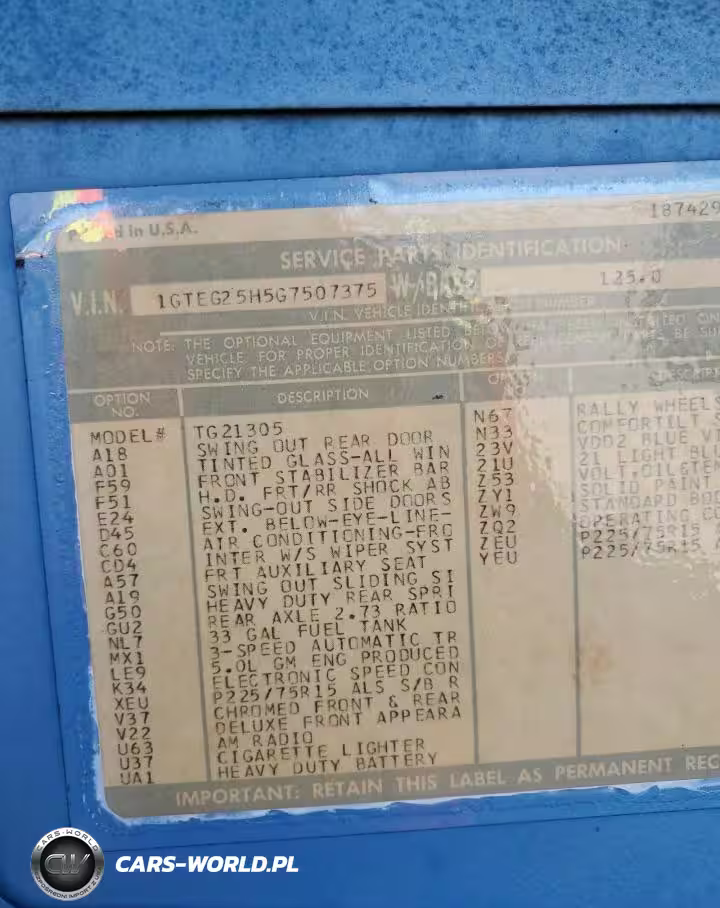 in U.S.A.
187429
SERVICE PARTS IDENTIFICATION
V.I.N. 1GTEG25H5G7507375 W/BASE 125.0
V.I.N. VEHICLE IDENTI NUMBER
NOTE: THE OPTIONAL EQUIPMENT LISTED
VEHICLE. FOR PROPER IDENTIFICATION OF
SPECIFY THE APPLICABLE OPTION NUMBERS.
OPTION NO. DESCRIPTION
MODEL# TG21305 N67 RALLY WHEELS
A18 SWING OUT REAR DOOR N33 COMFORTILT S
A01 TINTED GLASS-ALL WIN 23V VDD2 BLUE
F59 FRONT STABILIZER BAR 21U 21 LIGHT BLU
F51 H.D. FRT/RR SHOCK AB Z53 VOLT,OILGTE
E24 SWING-OUT SIDE DOORS ZY1 SOLID PAINT
D45 EXT. BELOW-EYE-LINE- ZW9 STANDARD BOD
C60 AIR CONDITIONING-FRO ZQ2 OPERATING CO
CD4 INTER W/S WIPER SYST ZEU P225/75R15
A57 FRT AUXILIARY SEAT YEU P225/75R15 A
A19 SWING OUT SLIDING SI
G50 HEAVY DUTY REAR SPRI
GU2 REAR AXLE 2.73 RATIO
NL7 33 GAL FUEL TANK
MX1 3-SPEED AUTOMATIC TR
LE9 5.0L GM ENG PRODUCED
K34 ELECTRONIC SPEED CON
XEU P225/75R15 ALS S/B R
V37 CHROMED FRONT & REAR
V22 DELUXE FRONT APPEARA
U63 AM RADIO
U37 CIGARETTE LIGHTER
UA1 HEAVY DUTY BATTERY
IMPORTANT: RETAIN THIS LABEL AS PERMANENT REC
CARS-WORLD
CW
CARS-WORLD.PL